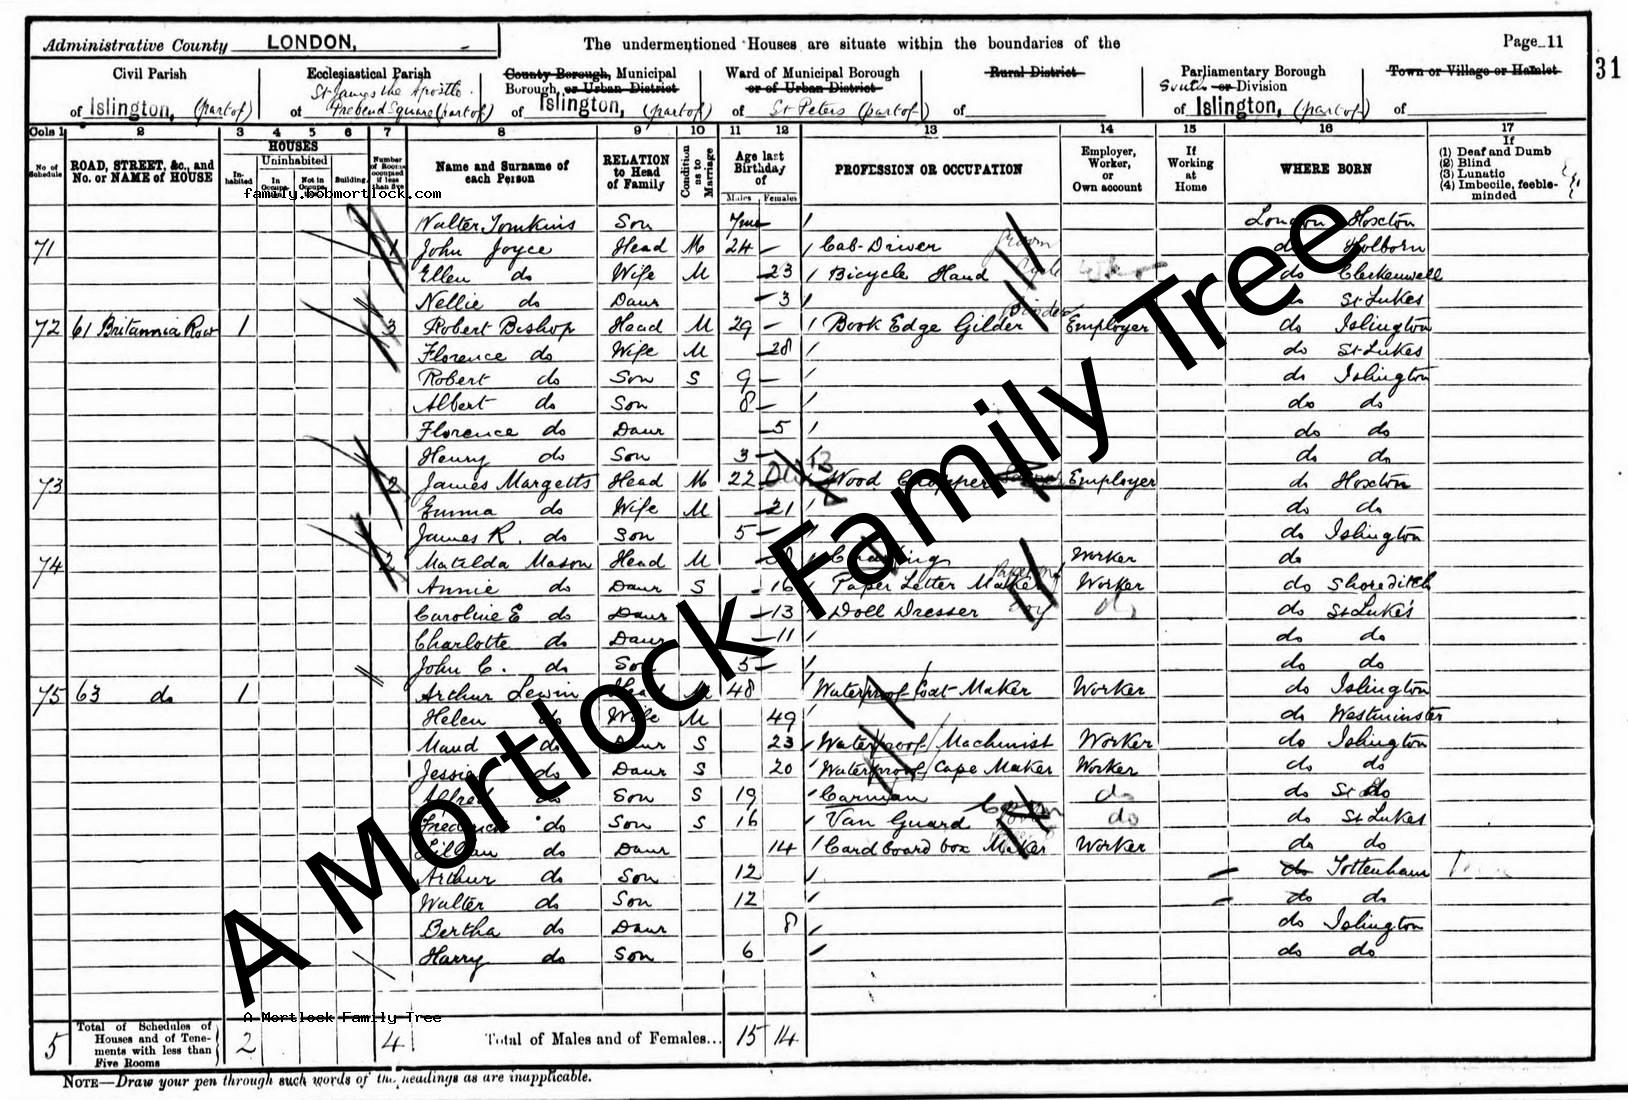 Administrative County LONDON,
The undermentioned Houses are situate within the boundaries of the
Page 11
31
Civil Parish of Islington, (part of)
Ecclesiastical Parish of St James the Apostle Prebend Square (part of)
County Borough, Municipal Borough, or Urban District of Islington, (part of)
Ward of Municipal Borough or of Urban District of St Peters (part of)
Rural District of
Parliamentary Borough South or Division of Islington, (part of)
Town or Village or Hamlet of
Cols 1 2 3 4 5 6 7 8 9 10 11 12 13 14 15 16 17
No. of Schedule
ROAD, STREET, &c., and No. or NAME of HOUSE
HOUSES
Inhabited
Uninhabited
In Occupn.
Not in Occupn.
Building
Number of Rooms occupied if less than five
Name and Surname of each Person
RELATION to Head of Family
Condition as to Marriage
Age last Birthday of
Males Females
PROFESSION OR OCCUPATION
Employer, Worker, or Own account
If Working at Home
WHERE BORN
If
(1) Deaf and Dumb
(2) Blind
(3) Lunatic
(4) Imbecile, feeble-minded
family.bobmortlock.com
Walter Tomkins Son 7ms London Hoxton
71 1 John Joyce Head M 24 Cab-Driver groom do Holborn
Ellen do Wife M 23 Bicycle Hand Cycle do Clerkenwell
Nellie do Daur 3 do St Lukes
72 61 Britannia Row 1 3 Robert Bishop Head M 29 Book Edge Gilder Binder Employer do Islington
Florence do Wife M 28 do St Lukes
Robert do Son S 9 do Islington
Albert do Son 8 do do
Florence do Daur 5 do do
Henry do Son 3 do do
73 2 James Margetts Head M 22 Wood Chopper Employer do Hoxton
Emma do Wife M 21 do do
James R. do Son 5 do Islington
74 2 Matilda Mason Head M Worker do
Annie do Daur S 16 Paper Letter Maker Worker do Shoreditch
Caroline E do Daur 13 Doll Dresser Toy do do St Luke's
Charlotte do Daur 11 do do
John C. do Son 5 do do
75 63 do 1 Arthur Lewin Head M 48 Waterproof Coat Maker Worker do Islington
Helen do Wife M 49 do Westminster
Maud do Daur S 23 Waterproof Machinist Worker do Islington
Jessie do Daur S 20 Waterproof Cape Maker Worker do do
Alfred do Son S 19 Carman do do St do
Frederick do Son S 16 Van Guard do do St Lukes
Lillian do Daur 14 Cardboard box Maker Worker do do
Arthur do Son 12 do Tottenham
Walter do Son 12 do do
Bertha do Daur 8 do Islington
Harry do Son 6 do do
A Mortlock Family Tree
A Mortlock Family Tree
5 Total of Schedules of Houses and of Tenements with less than Five Rooms 2 4 Total of Males and of Females... 15 14
NOTE—Draw your pen through such words of the headings as are inapplicable.